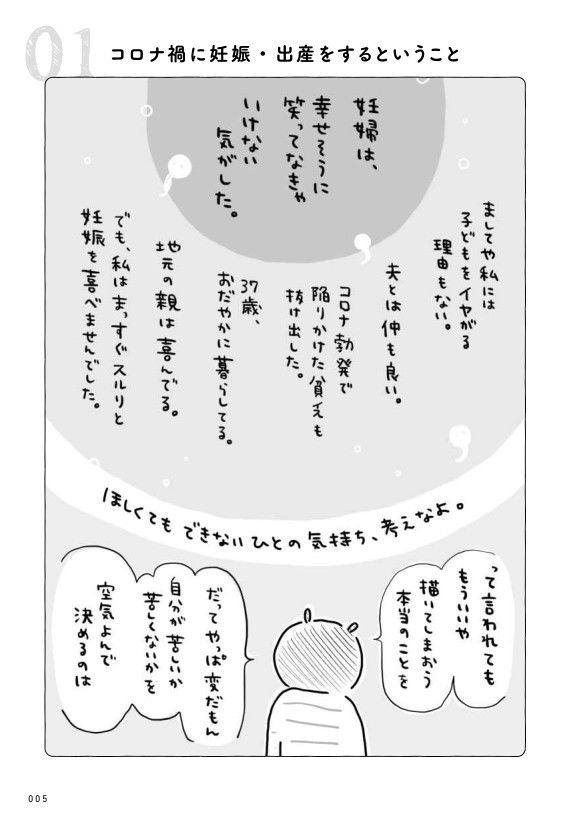 01
コロナ禍に妊娠・出産をするということ
妊婦は、
幸せそうに
笑ってなきゃ
いけない
気がした。
ましてや私には
子どもをイヤがる
理由もない。
夫とは仲も良い。
コロナ勃発で
陥りかけた貧乏も
抜け出した。
37歳、
おだやかに暮らしてる。
地元の親は喜んでる。
でも、私はまっすぐスルリと
妊娠を喜べませんでした。
ほしくてもできないひとの気持ち、考えなよ。
って言われても
もういいや
描いてしまおう
本当のことを
だってやっぱ変だもん
自分が苦しいか
苦しくないかを
空気よんで
決めるのは
005